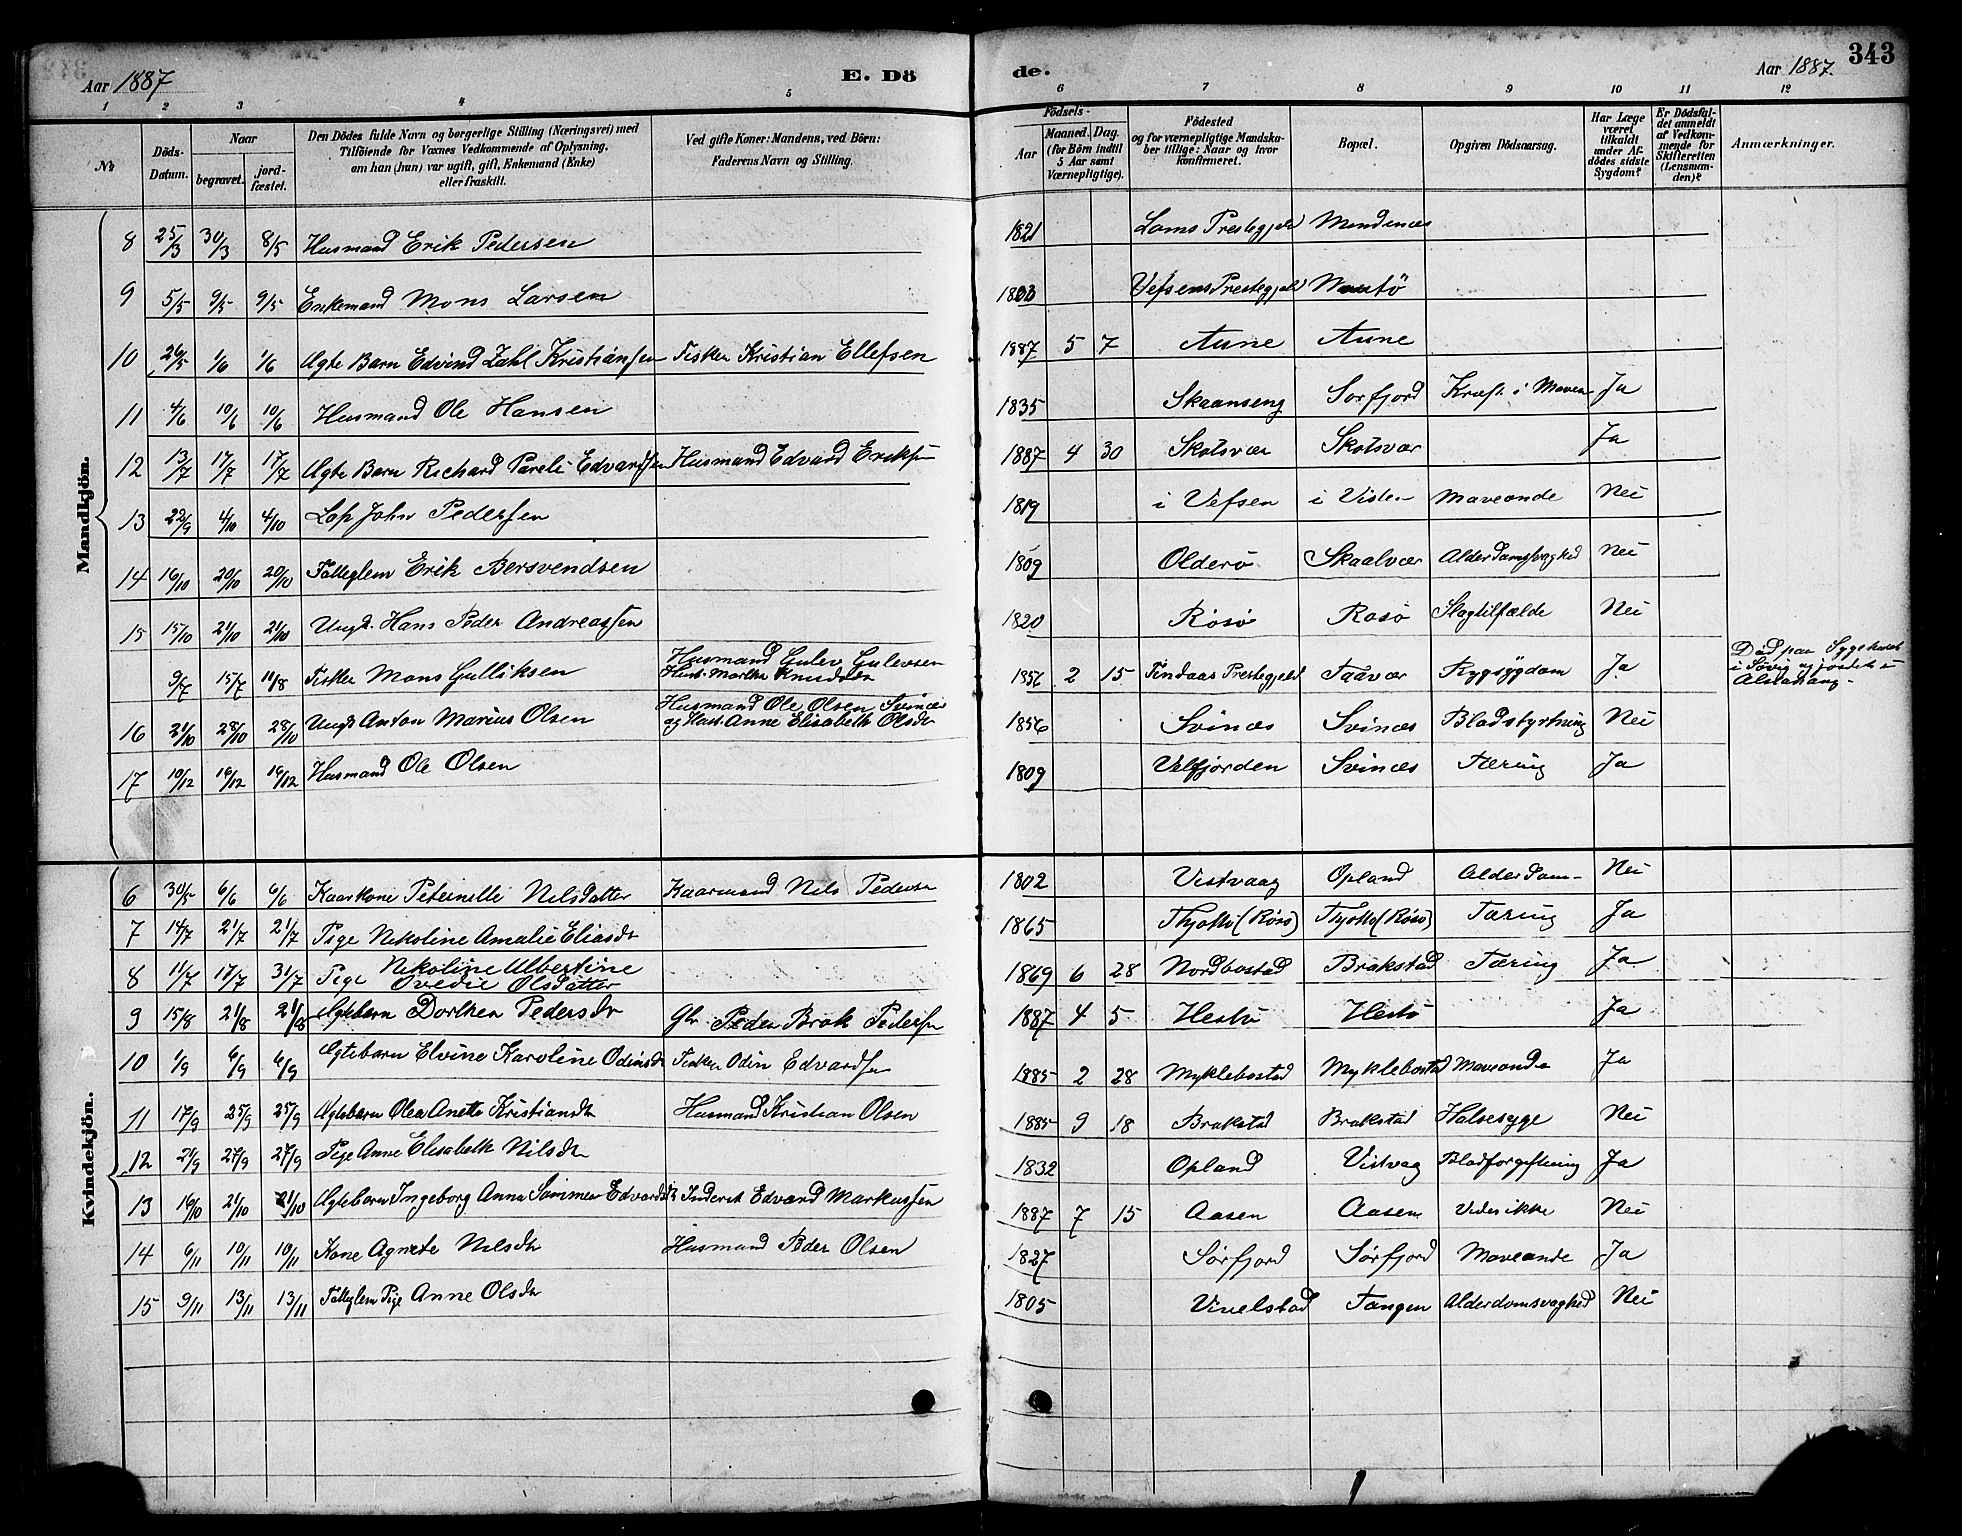 343
Aar 1887
E. Dö
de.
Aar 1887.
1 2 3 4 5 6 7 8 9 10 11 12
№
Döds-Datum.
Naar
begravet.
jordfæstet.
Den Dödes fulde Navn og borgerlige Stilling (Næringsvei) med
Tilföiende for Voxnes Vedkommende af Oplysning,
om han (hun) var ugift, gift, Enkemand (Enke)
eller fraskilt.
Ved gifte Koner: Mandens, ved Börn:
Faderens Navn og Stilling.
Födsels-
Aar
Maaned. Dag.
(for Börn indtil
5 Aar samt
Værnepligtige).
Födested
og for værnepligtige Mandska-
ber tillige: Naar og hvor
konfirmeret.
Bopæl.
Opgiven Dödsaarsag.
Har Læge
været
tilkaldt
under Af-
dödes sidste
Sygdom?
Er Dödsfal-
det anmeldt
af Vedkom-
mende for
Skifteretten
(Lensman-
den)?
Anmærkninger.
Mandkjön.
8 25/3 30/3 8/5 Husmand Erik Pedersen 1821 Loms Prestegjeld Mindenæs
9 5/5 9/5 9/5 Enkemand Mons Larsen Vefsens Prestegjeld
10 26/5 1/6 1/6 Ægte Barn Edvind Zahl Kristiansen Fisker Kristian Ellefsen 1887 5 7 Aune Aune
11 4/6 10/6 10/6 Husmand Ole Hansen 1835 Skaanseng Sørfjord Kræft i Maven Ja
12 13/7 17/7 17/7 Ægte Barn Richard Pareli Edvardsen Husmand Edvard Eriksen 1887 4 30 Skotsvær Skotsvær Ja
13 22/9 4/10 4/10 Lap John Pedersen 1819 i Vefsen i Visten Maveonde Nei
14 16/10 20/10 20/10 Fatteglem Erik Bersvendsen 1809 Olderø Skaalvær Alderdomsvaghed Nei
15 15/10 21/10 21/10 Ungk. Hans Peder Andreassen 1820 Røsø Rosø Slagtilfælde Nei
9/7 15/7 10/8 Fisker Mons Gulliksen Husmand Gulev Gulevsen
Hust. Marthe Knudsdtr 1856 2 15 Findaas Prestegjeld Taavær Rygsygdom Ja Død paa Sygehuset
i Søvig og jordet i
Alstahaug
16 21/10 28/10 28/10 Ungk Anton Marius Olsen Husmand Ole Olsen Svinæs
og Hust. Anne Elisabeth Olsdtr 1856 Svinæs Svinæs Blodstyrtning Nei
17 10/12 16/12 16/12 Husmand Ole Olsen 1809 Velfjorden Svinæs Tæring Ja
Kvindekjön.
6 30/5 6/6 6/6 Kaarkone Peternelle Nilsdatter Kaarmand Nils Pedersen 1802 Vistvaag Opland Alderdom- Nei
7 14/7 21/7 21/7 Pige Nikoline Amalie Eliasdtr 1865 Thjøtto (Røsø) Thjotto (Røsø) Tæring Ja
8 11/7 17/7 31/7 Pige Nikoline Albertine
Ovedie Olsdatter 1869 6 28 Nordbostad Brakstad Tæring Ja
9 15/8 21/8 21/8 Ægtebarn Dorthea Pedersdtr Gbr Peder Brok Pedersen 1887 4 5 Hestø Hestø Ja
10 1/9 6/9 6/9 Ægtebarn Elvine Karoline Odinsdtr Fisker Odin Edvardsen 1885 2 28 Myklebostad Myklebostad Maveonde Ja
11 17/9 25/9 25/9 Ægtebarn Olea Anette Kristiansdtr Husmand Kristian Olsen 1885 9 18 Brakstad Brakstad Halsesyge Nei
12 21/9 27/9 27/9 Pige Anne Elisabeth Nilsdtr 1832 Opland Vistvag Blodforgiftning Ja
13 16/10 21/10 21/10 Ægtebarn Ingeborg Anna Edvardsdtr Inderst Edvard Markussen 1887 7 15 Aasen Aasen Vides ikke Nei
14 6/11 10/11 10/11 Kone Agnete Nilsdtr Husmand Peder Olsen 1827 Sørfjord Sørfjord Maveonde Ja
15 9/11 13/11 13/11 Fatteglem Pige Anne Olsdtr 1805 Vivelstad Tangen Alderdomsvaghed Nei